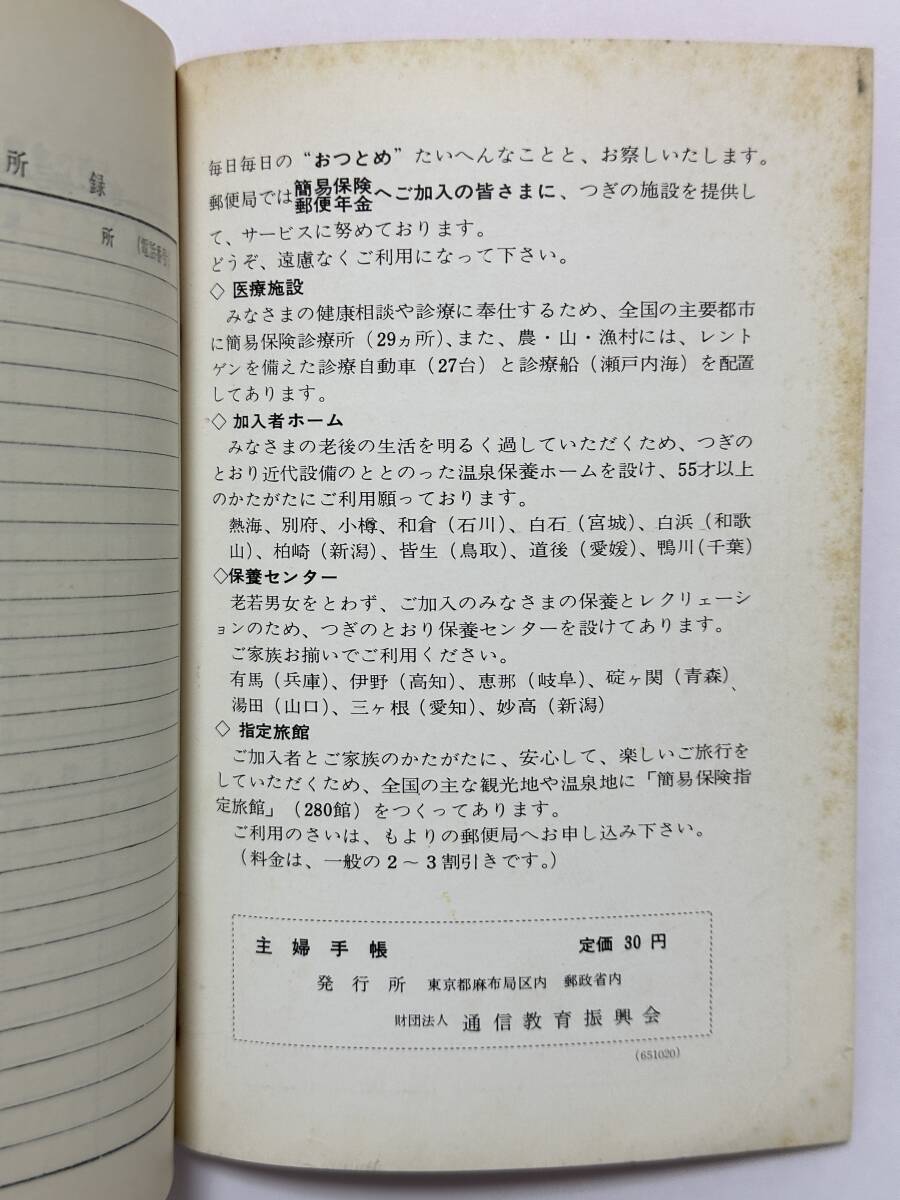 所　録
所（電話番号）
毎日毎日の“おつとめ”たいへんなことと、お察しいたします。
郵便局では簡易保険郵便年金へご加入の皆さまに、つぎの施設を提供し
て、サービスに努めております。
どうぞ、遠慮なくご利用になって下さい。
◇医療施設
みなさまの健康相談や診療に奉仕するため、全国の主要都市
に簡易保険診療所（29ヵ所）、また、農・山・漁村には、レント
ゲンを備えた診療自動車（27台）と診療船（瀬戸内海）を配置
してあります。
◇加入者ホーム
みなさまの老後の生活を明るく過していただくため、つぎの
とおり近代設備のととのった温泉保養ホームを設け、55才以上
のかたがたにご利用願っております。
熱海、別府、小樽、和倉（石川）、白石（宮城）、白浜（和歌
山）、柏崎（新潟）、皆生（鳥取）、道後（愛媛）、鴨川（千葉）
◇保養センター
老若男女をとわず、ご加入のみなさまの保養とレクリェーシ
ョンのため、つぎのとおり保養センターを設けてあります。
ご家族お揃いでご利用ください。
有馬（兵庫）、伊野（高知）、恵那（岐阜）、碇ヶ関（青森）、
湯田（山口）、三ヶ根（愛知）、妙高（新潟）
◇指定旅館
ご加入者とご家族のかたがたに、安心して、楽しいご旅行を
していただくため、全国の主な観光地や温泉地に「簡易保険指
定旅館」（280館）をつくってあります。
ご利用のさいは、もよりの郵便局へお申し込み下さい。
（料金は、一般の２～３割引きです。）
主婦手帳　定価 30 円
発行所　東京都麻布局区内　郵政省内
財団法人　通信教育振興会
（651020）